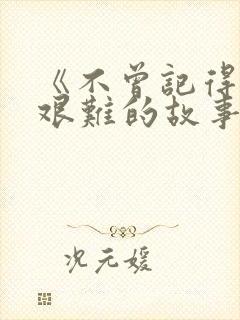 《不曾記得
艱難的故事
況元媛